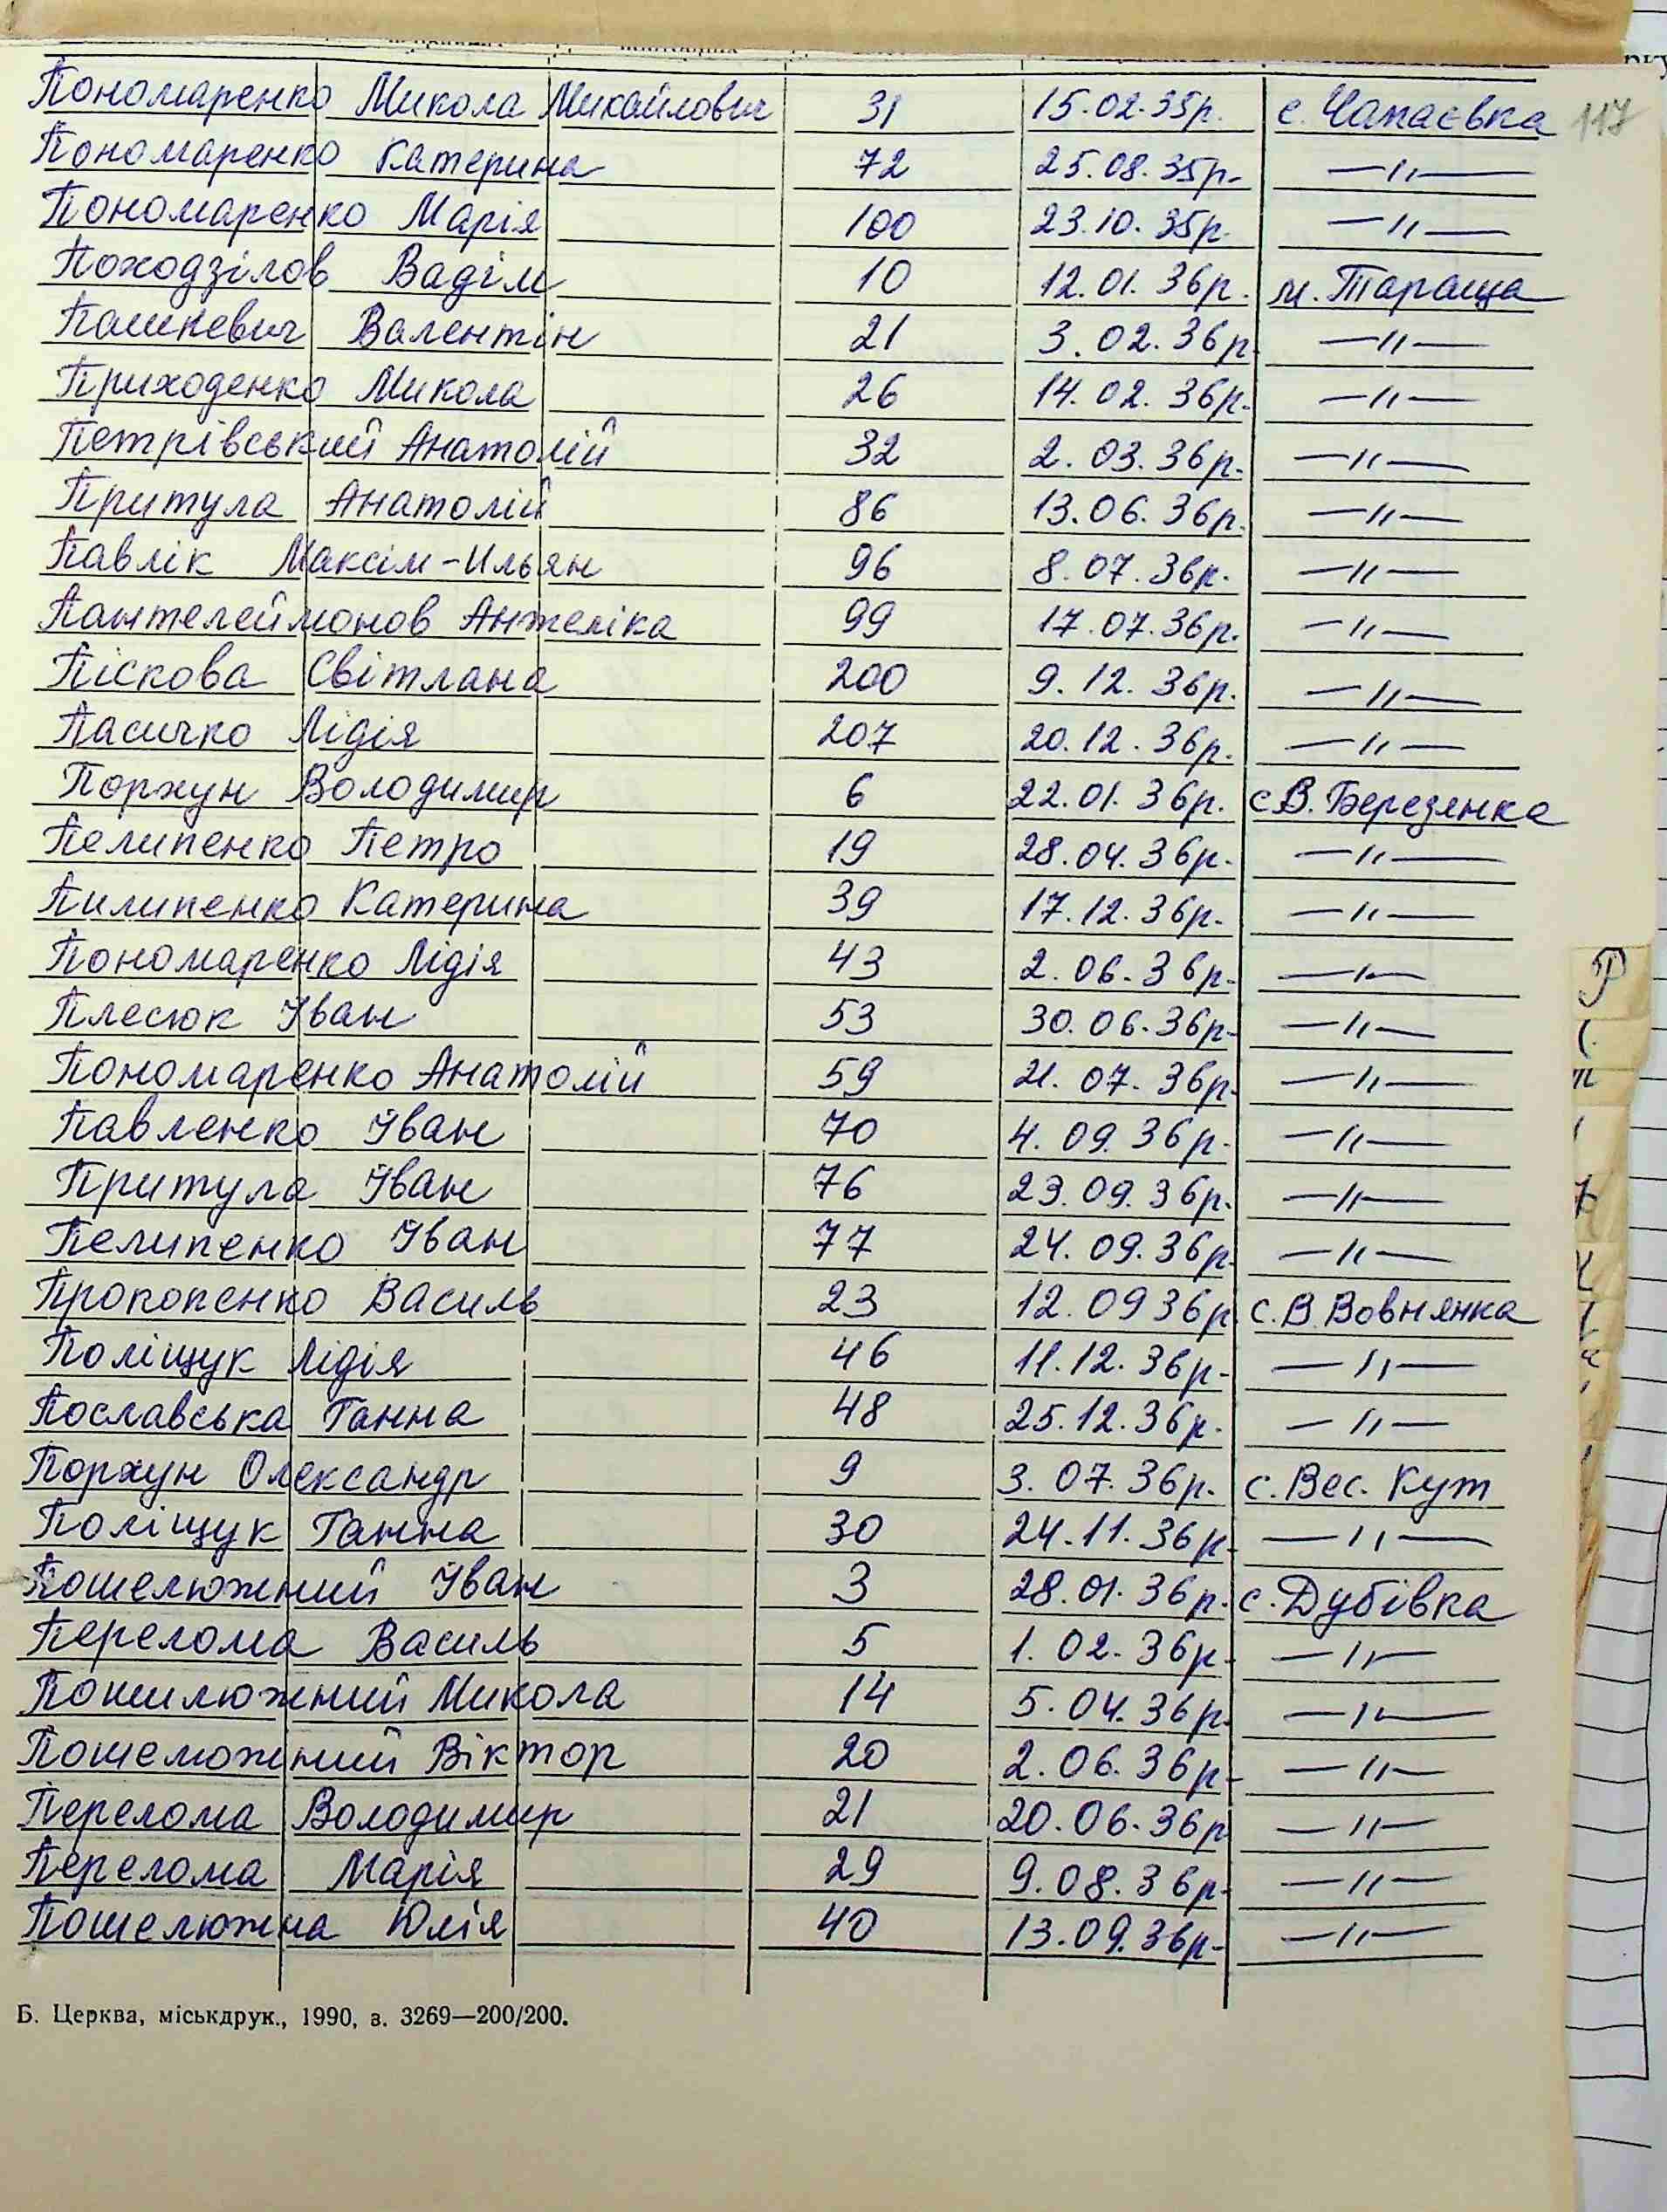 Пономаренко Микола Михайлович 31 15.02.35р. с. Чапаєвка 117
Пономаренко Катерина 72 25.08.35р. —"—
Пономаренко Марія 100 23.10.35р. —"—
Походзілов Вадім 10 12.01.36р. м. Тараща
Пашкевич Валентін 21 3.02.36р. —"—
Приходенко Микола 26 14.02.36р. —"—
Петрівський Анатолій 32 2.03.36р. —"—
Притула Анатолій 86 13.06.36р. —"—
Павлік Максім-Ильян 96 8.07.36р. —"—
Пантелеймонов Анжеліка 99 17.07.36р. —"—
Піскова Світлана 200 9.12.36р. —"—
Пасичко Лідія 207 20.12.36р. —"—
Порхун Володимир 6 22.01.36р. с В. Березянка
Пелипенко Петро 19 28.04.36р. —"—
Пилипенко Катерина 39 17.12.36р. —"—
Пономаренко Лідія 43 2.06.36р. —"—
Плесюк Іван 53 30.06.36р. —"—
Пономаренко Анатолій 59 21.07.36р. —"—
Павленко Іван 70 4.09.36р. —"—
Притула Іван 76 23.09.36р. —"—
Пелипенко Іван 77 24.09.36р. —"—
Прокопенко Василь 23 12.09 36р. с. В. Вовнянка
Поліщук Лідія 46 11.12.36р. —"—
Пославська Ганна 48 25.12.36р. —"—
Порхун Олександр 9 3.07.36р. с. Вес. Кут
Поліщук Ганна 30 24.11.36р. —"—
Пошелюжний Іван 3 28.01.36р. с. Дубівка
Перелома Василь 5 1.02.36р. —"—
Пошилюжний Микола 14 5.04.36р. —"—
Пошелюжний Віктор 20 2.06.36р. —"—
Перелома Володимир 21 20.06.36р —"—
Перелома Марія 29 9.08.36р. —"—
Пошелюжна Юлія 40 13.09.36р. —"—
Б. Церква, міськдрук., 1990, з. 3269—200/200.